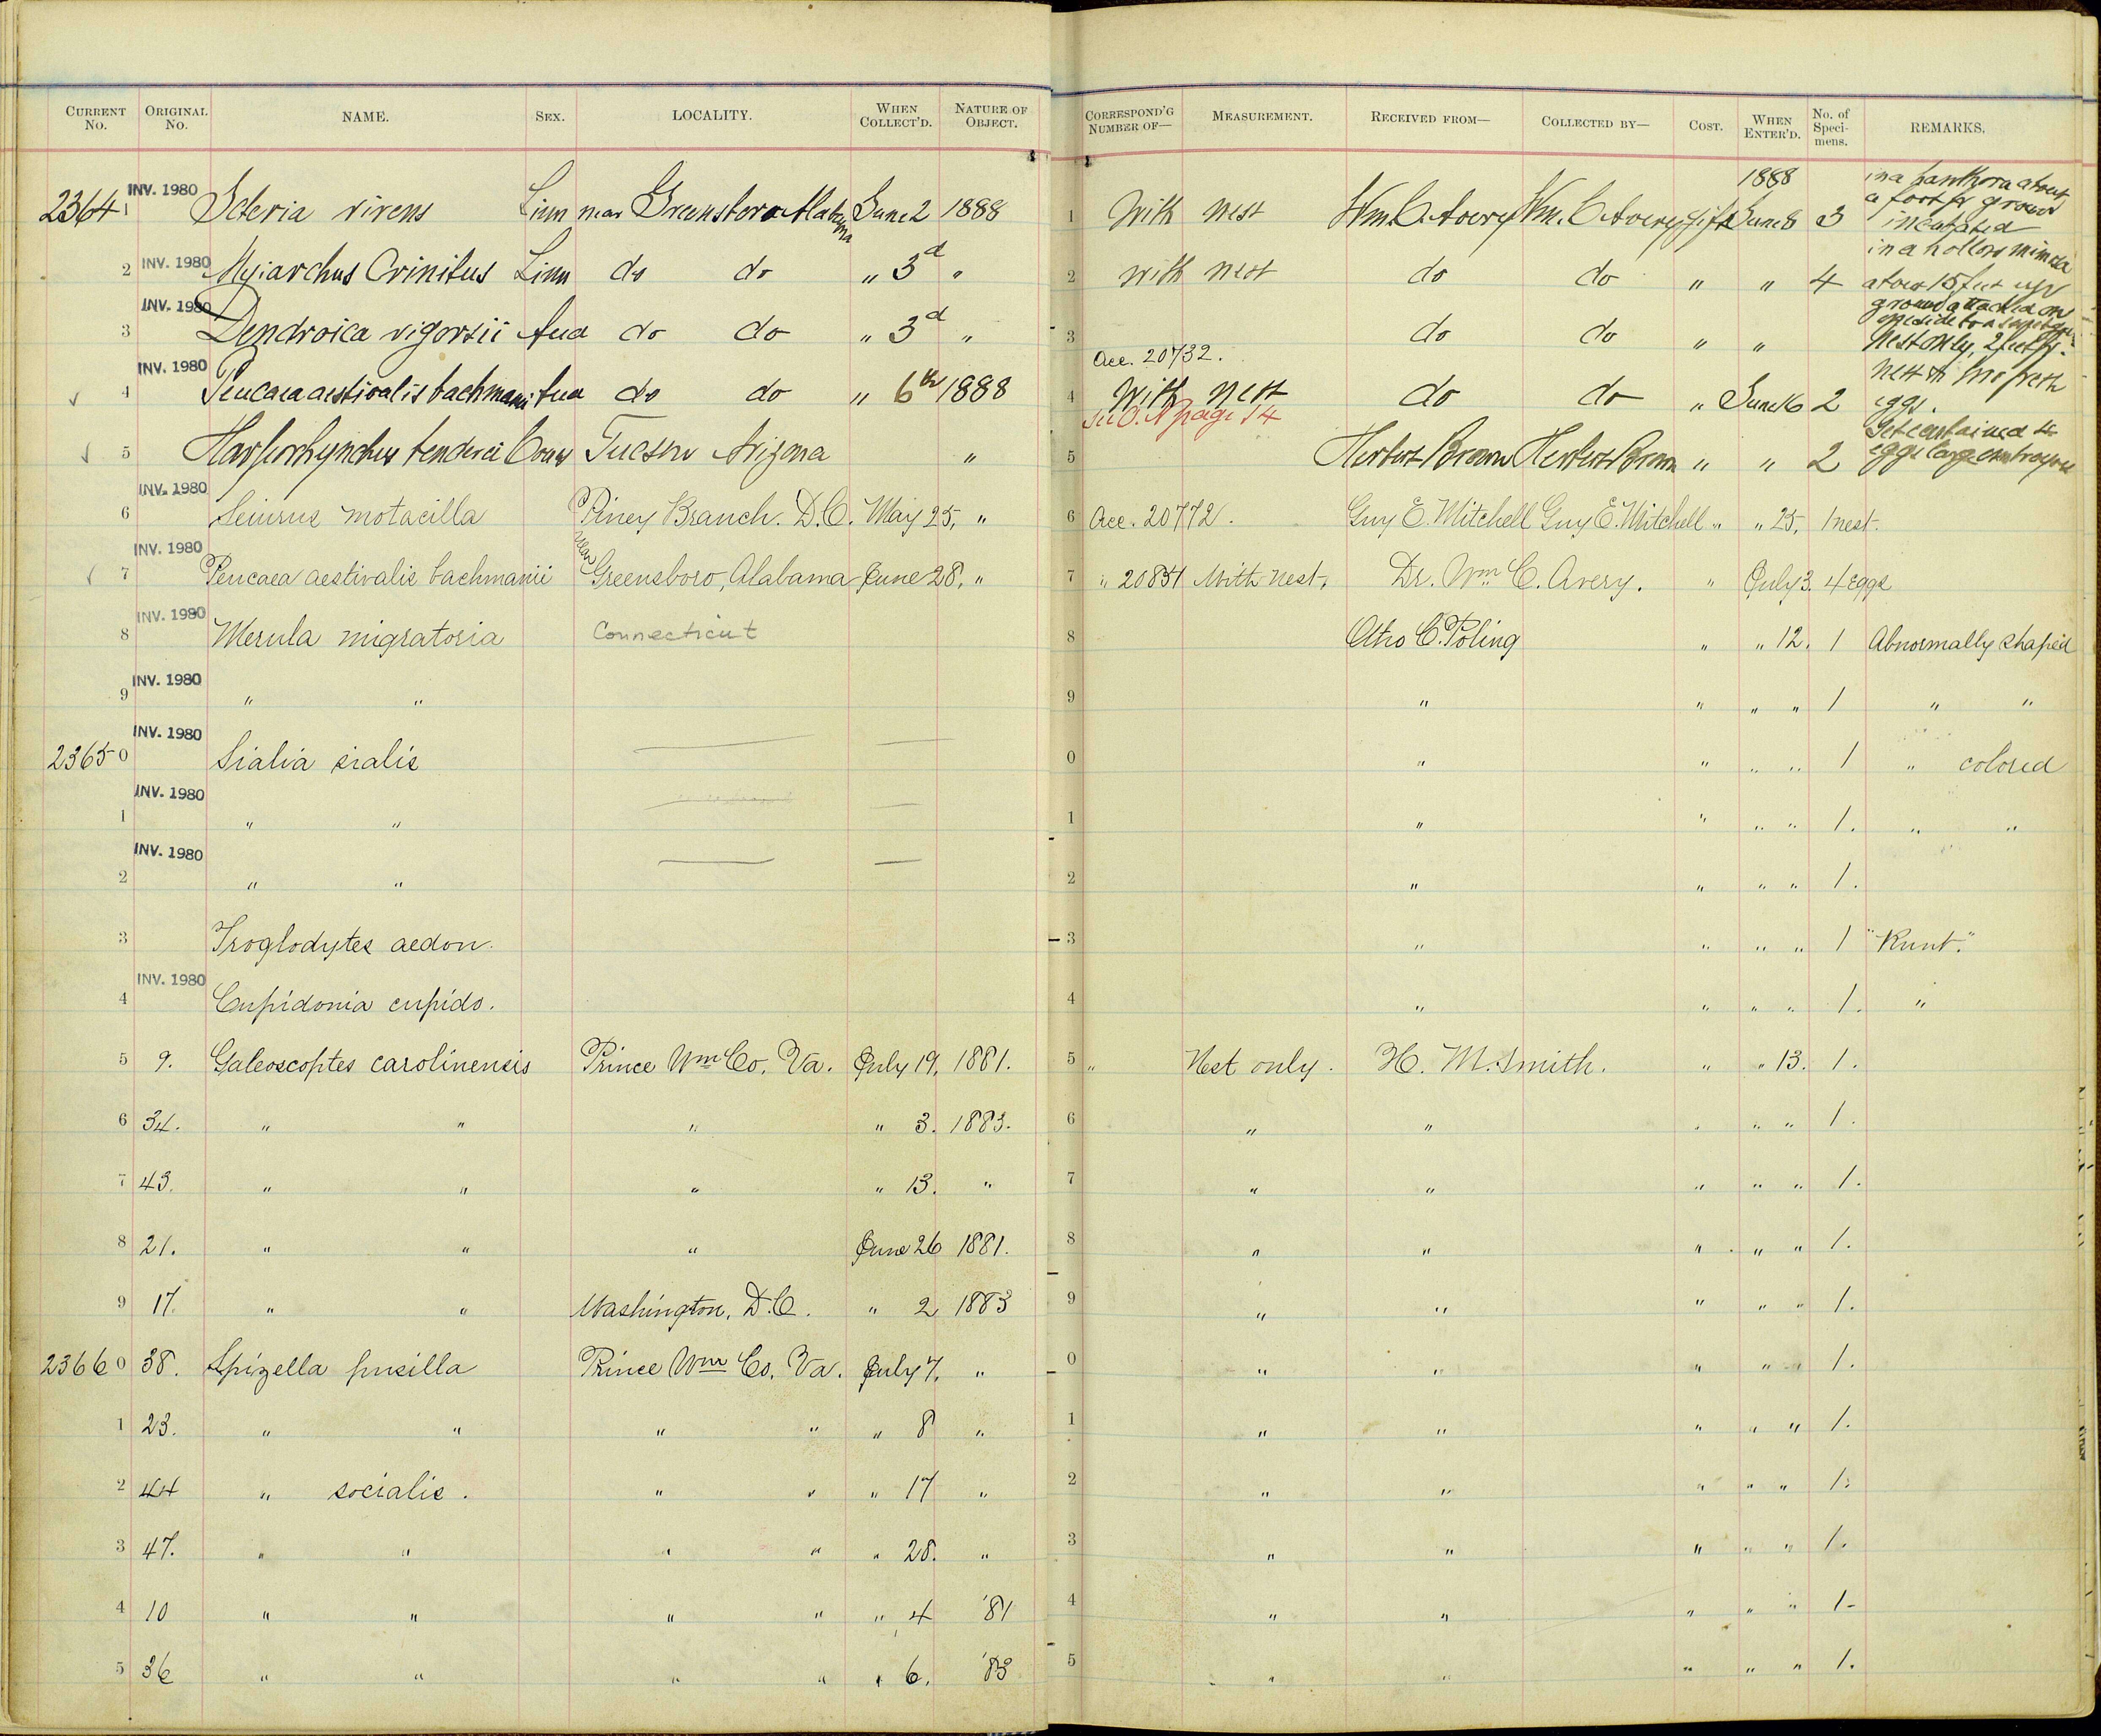 CURRENT No. ORIGINAL No. NAME. SEX. LOCALITY. WHEN COLLECT'D. NATURE OF OBJECT. CORRESPOND'G NUMBER OF— MEASUREMENT. RECEIVED FROM— COLLECTED BY— COST. WHEN ENTER'D. No. of Speci-mens. REMARKS.
2364 1 INV. 1980 Icteria virens Linn near Greensboro Alabama June 2 1888 1 With nest Wm. C. Avery Wm. C. Avery gift 1888 June 8 3 in a about a foot fr ground incubated
2 INV. 1980 Myiarchus Crinitus Linn do do " 3d " 2 with nest do do " " 4 in a hollow mimosa about 15 feet up
3 INV. 1980 Dendroica vigorsii Aud do do " 3d " 3 do do " " nest only, 2 feet fr. ground attached on one side to a
4 INV. 1980 Peucaea aestivalis bachmani Aud do do " 6th 1888 Acc. 20732. 4 With nest do do " June 16 2 nest & two fresh eggs.
see O. N page 14
5 Harporhynchus bendirei Coues Tucson Arizona " 5 Herbert Brown Herbert Brown " " 2 Set contained 4 eggs large embryos
6 INV. 1980 Seiurus motacilla Piney Branch. D.C. May 25, " 6 Acc. 20772. Guy E. Mitchell Guy E. Mitchell " " 25, 1 nest.
7 INV. 1980 Peucaea aestivalis bachmanii near Greensboro, Alabama June 28, " 7 " 20831 With nest. Dr. Wm C. Avery. " July 3. 4 eggs
8 INV. 1980 Merula migratoria Connecticut 8 Otho C. Poling " " 12. 1 Abnormally shaped
9 INV. 1980 " " 9 " " " " 1 " "
2365 0 INV. 1980 Sialia sialis 0 " " " " 1 " colored
1 INV. 1980 " " 1 " " " " 1. " "
2 INV. 1980 " " 2 " " " " 1.
3 Troglodytes aedon. 3 " " " " 1 "Runt."
4 INV. 1980 Cupidonia cupido. 4 " " " " 1. "
5 9. Galeoscoptes carolinensis Prince Wm Co. Va. July 19, 1881. 5 " Nest only. H. M. Smith. " " 13. 1.
6 34. " " " " 3. 1883. 6 " " " " " 1.
7 43. " " " " 13. " 7 " " " " " 1.
8 21. " " " June 26 1881. 8 " " " " " 1.
9 17. " " Washington, D.C. " 2 1883 9 " " " " " 1.
2366 0 38. Spizella pusilla Prince Wm Co. Va. July 7. " 0 " " " " " 1.
1 23. " " " " " 8 " 1 " " " " " 1.
2 44 " socialis. " " " 17 " 2 " " " " " 1.
3 47. " " " " " 28. " 3 " " " " " 1.
4 10 " " " " " 4 '81 4 " " " " " 1-
5 36 " " " " " 6. '83 5 " " " " " 1.